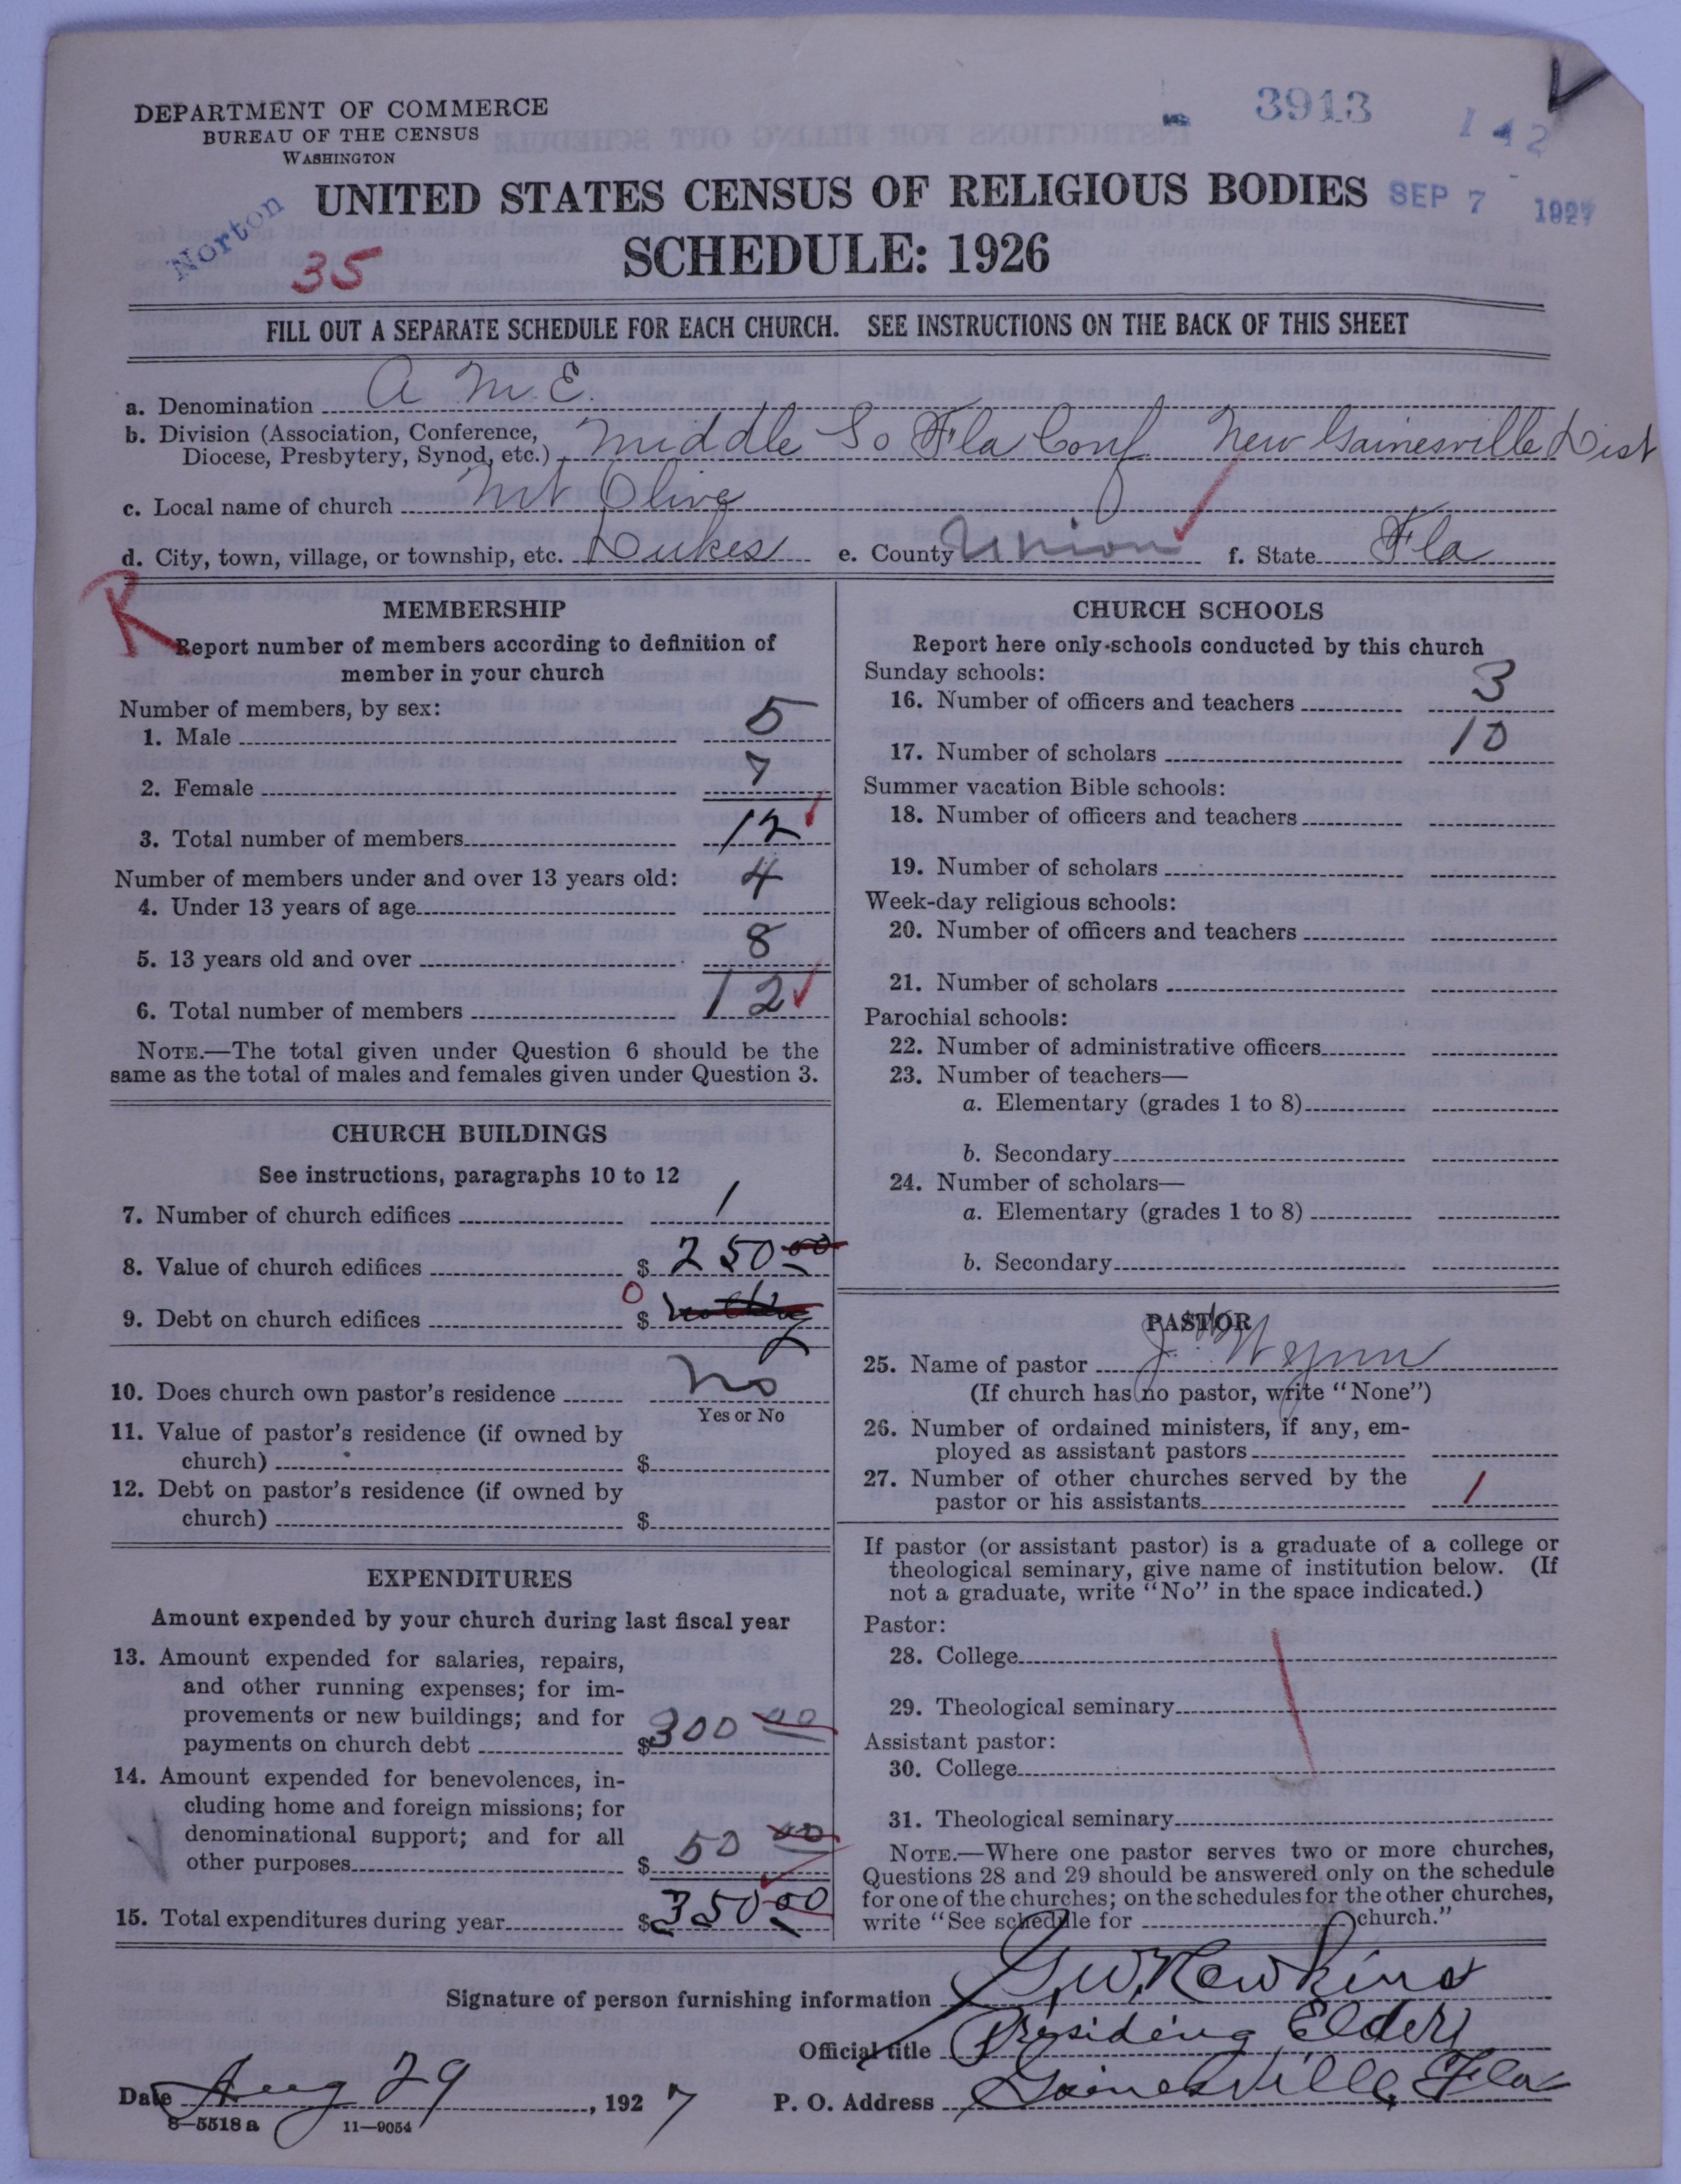 DEPARTMENT OF COMMERCE
BUREAU OF THE CENSUS
WASHINGTON
3913
142
Norton
35
UNITED STATES CENSUS OF RELIGIOUS BODIES
SEP 7 1927
SCHEDULE: 1926
FILL OUT A SEPARATE SCHEDULE FOR EACH CHURCH. SEE INSTRUCTIONS ON THE BACK OF THIS SHEET
a. Denomination A M E.
b. Division (Association, Conference,
Diocese, Presbytery, Synod, etc.) Middle So Fla Conf New Gainesville Dist
c. Local name of church Mt Olive
d. City, town, village, or township, etc. Dukes e. County Union f. State Fla
R
MEMBERSHIP
Report number of members according to definition of
member in your church
Number of members, by sex:
1. Male 5
2. Female 7
3. Total number of members 12
Number of members under and over 13 years old:
4. Under 13 years of age 4
5. 13 years old and over 8
6. Total number of members 12
NOTE.—The total given under Question 6 should be the
same as the total of males and females given under Question 3.
CHURCH BUILDINGS
See instructions, paragraphs 10 to 12
7. Number of church edifices 1
8. Value of church edifices $ 250 00
9. Debt on church edifices 0 $ nothing
10. Does church own pastor's residence No
Yes or No
11. Value of pastor's residence (if owned by
church) $
12. Debt on pastor's residence (if owned by
church) $
EXPENDITURES
Amount expended by your church during last fiscal year
13. Amount expended for salaries, repairs,
and other running expenses; for im-
provements or new buildings; and for
payments on church debt $ 300 00
14. Amount expended for benevolences, in-
cluding home and foreign missions; for
denominational support; and for all
other purposes $ 50 00
15. Total expenditures during year $ 350 00
CHURCH SCHOOLS
Report here only schools conducted by this church
Sunday schools:
16. Number of officers and teachers 3
17. Number of scholars 10
Summer vacation Bible schools:
18. Number of officers and teachers
19. Number of scholars
Week-day religious schools:
20. Number of officers and teachers
21. Number of scholars
Parochial schools:
22. Number of administrative officers
23. Number of teachers—
a. Elementary (grades 1 to 8)
b. Secondary
24. Number of scholars—
a. Elementary (grades 1 to 8)
b. Secondary
PASTOR
25. Name of pastor J. Wynn
(If church has no pastor, write "None")
26. Number of ordained ministers, if any, em-
ployed as assistant pastors
27. Number of other churches served by the
pastor or his assistants 1
If pastor (or assistant pastor) is a graduate of a college or
theological seminary, give name of institution below. (If
not a graduate, write "No" in the space indicated.)
Pastor:
28. College
29. Theological seminary
Assistant pastor:
30. College
31. Theological seminary
NOTE.—Where one pastor serves two or more churches,
Questions 28 and 29 should be answered only on the schedule
for one of the churches; on the schedules for the other churches,
write "See schedule for church."
Signature of person furnishing information G. W. Hawkins
Official title Presiding Elder
Date Aug 29, 1927 P. O. Address Gainesville, Fla
8-5518 a 11-9054